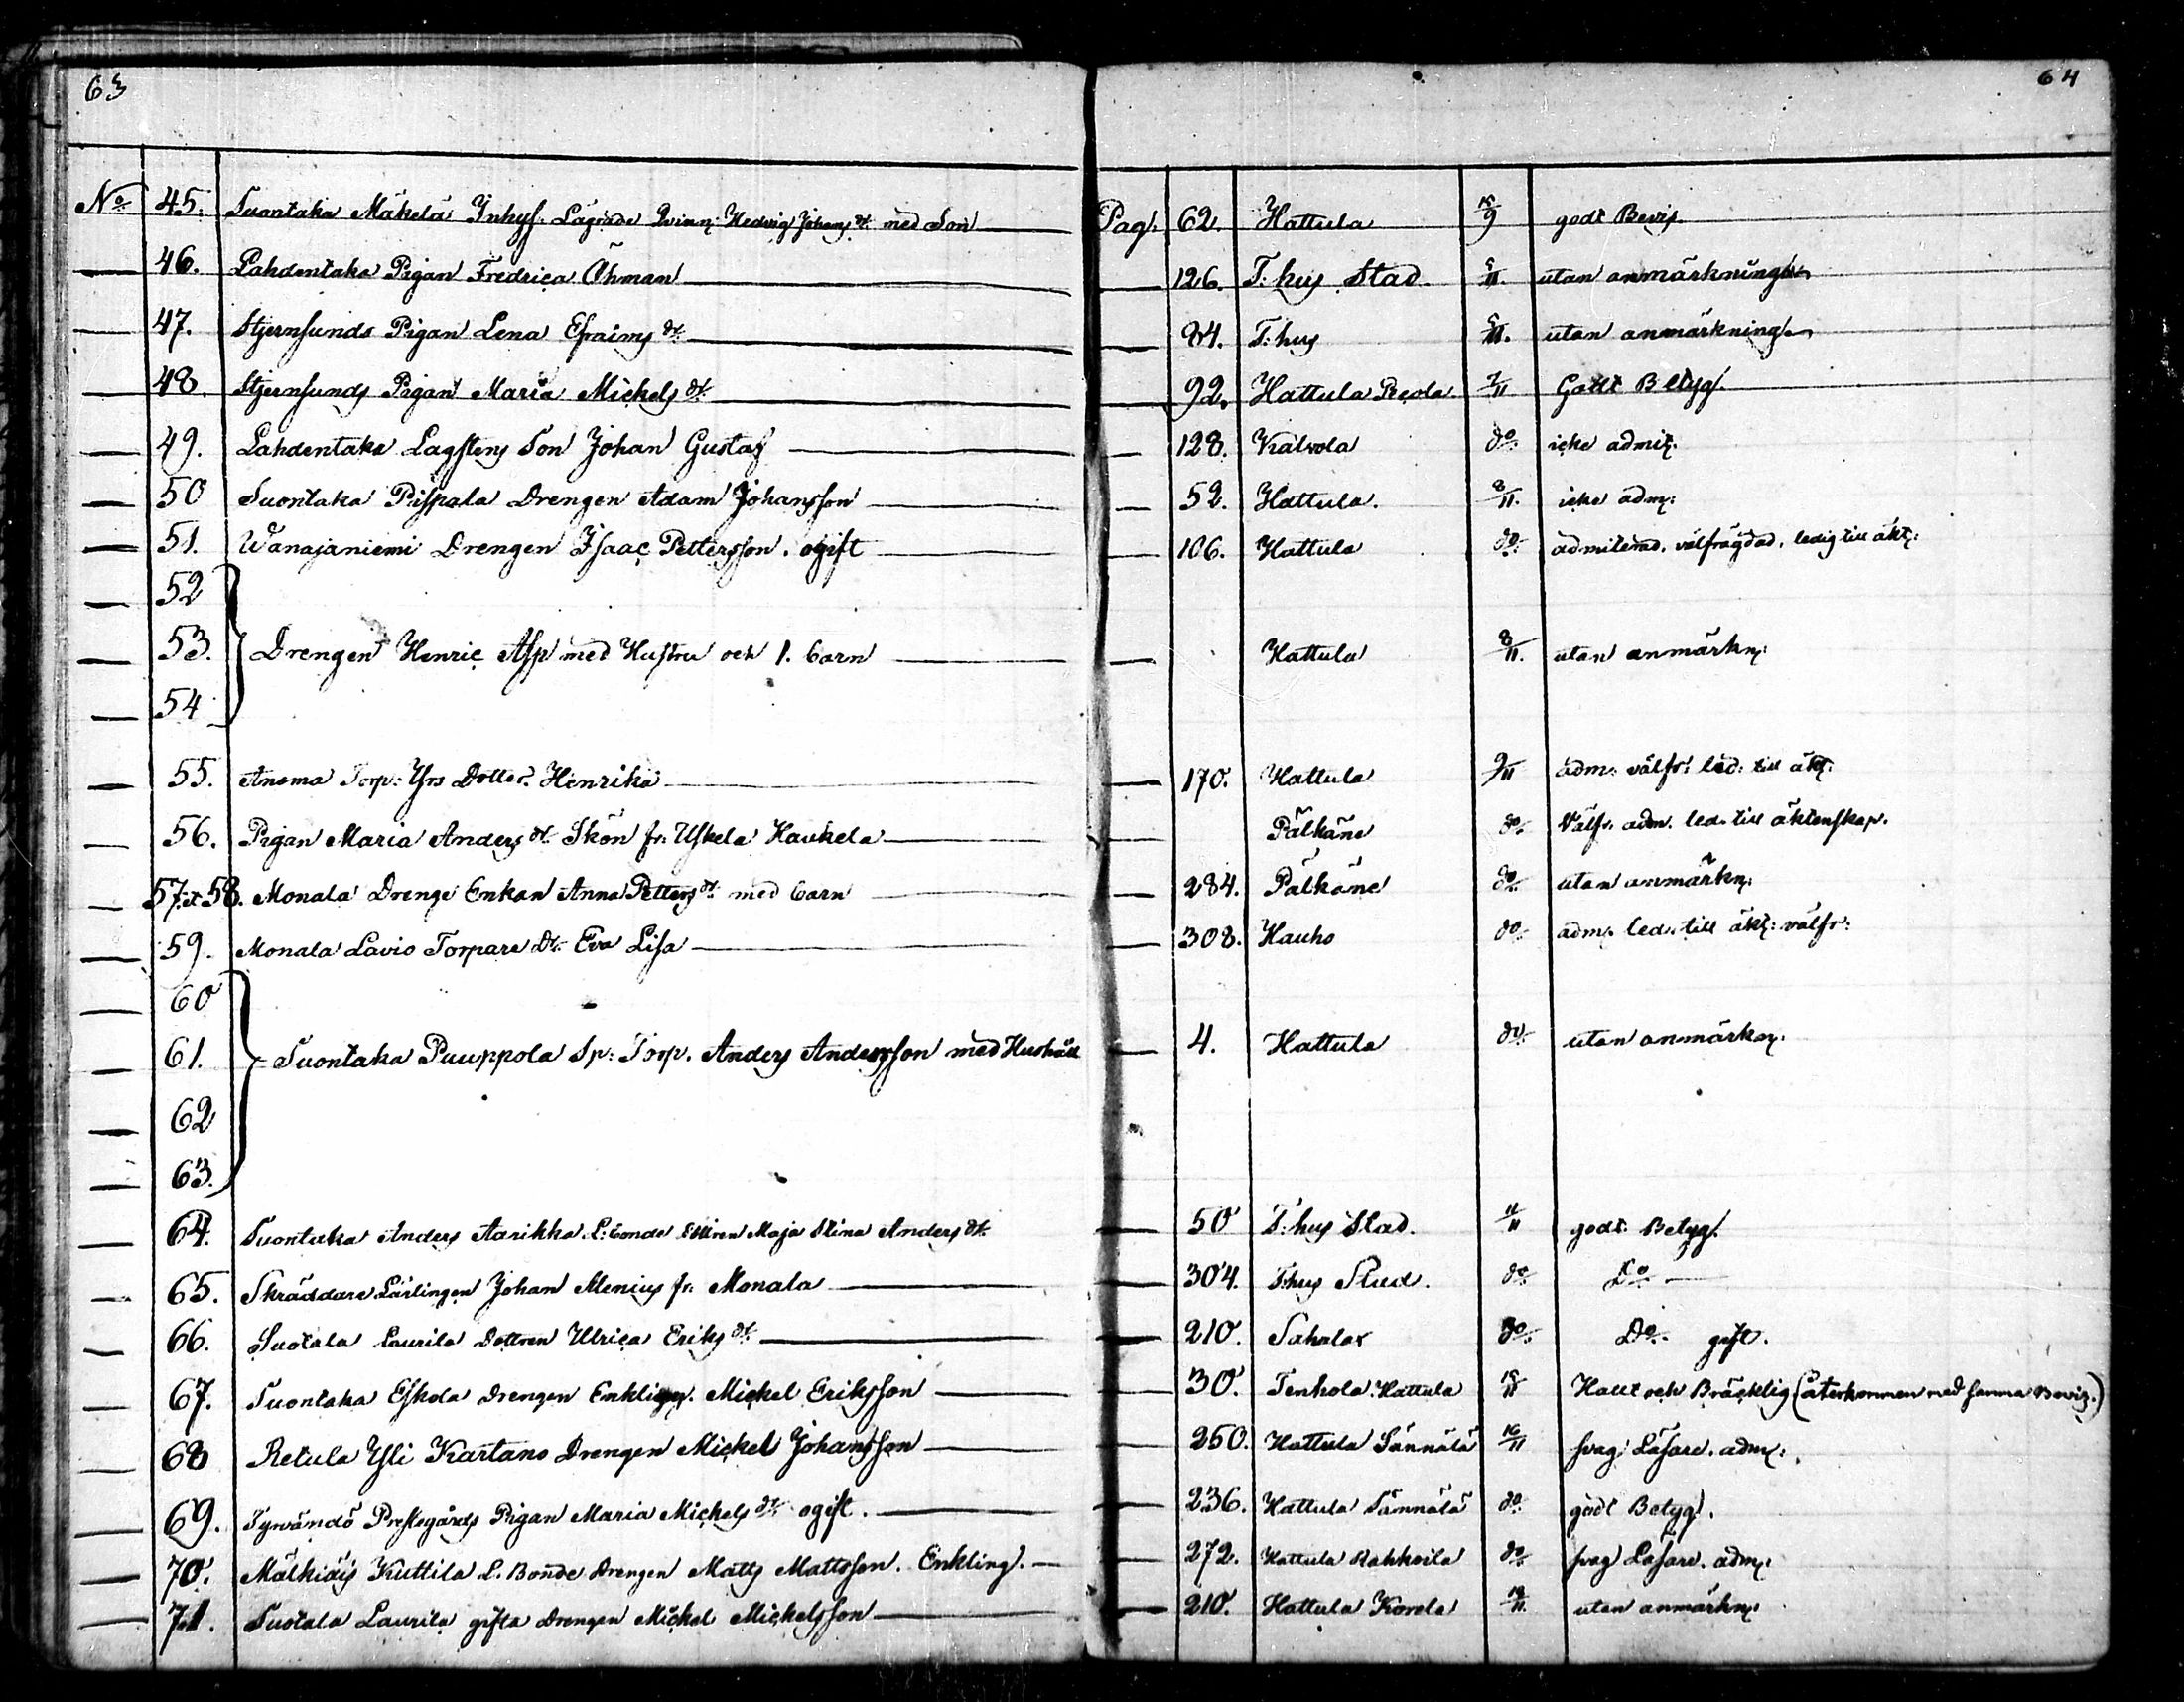 63
64
No 45. Suontaka Mäkelä Inhys. Lägrade Qvinn: Hedvig Johans dr. med Son Pag. 62. Hattula 15/9 godt Bevis
46. Lahdentaka Pigan Fredrica Öhman 126. T:hus Stad 5/11. utan anmärkning
47. Stjernsunds Pigan Lena Efraims dr. 84. T:hus 5/11. utan anmärkning
48. Stjernsunds Pigan Maria Mickels dr. 92. Hattula 7/11 Godt Betyg.
49. Lahdentaka Lagstens Son Johan Gustaf 128. Kalvola do. icke admit.
50 Suontaka Pispala Drengen Adam Johansson 52. Hattula. 8/11. icke adm:
51. Wanajaniemi Drengen Isaac Pettersson. ogift 106. Hattula do. admiterad. välfrägdad. ledig till äkt:
52
53. Drengen Henric Asp med Hustru och 1. barn Hattula 8/11. utan anmärkn:
54
55. Anoma Torp: Yrs Dotter. Henrika 170. Hattula 9/11 adm: välfr: led: till äkt.
56. Pigan Maria Anders dr. Skön fr: Uskela Haukela Pälkäne do. Välfr. adm. led. till äktenskap.
57. et 58. Monala Drenge Enkan Anna Petters dr. med barn 284. Pälkäne do. utan anmärkn:
59. Monala Lavio Torpare Dr. Eva Lisa 308. Hauho do. adm. led. till äkt: välfr:
60
61. Suontaka Puuppola Sp: Torp. Anders Andersson med Hushåll 4. Hattula do. utan anmärkn:
62
63.
64. Suontaka Anders Aarikka L: bonde Maja Stina Anders dr. 50 T:hus Stad. 11/11 godt Betyg.
65. Skräddare Lärlingen Johan Menius fr: Monala 304. T:hus Stad. do. Do.
66. Suotala Laurila Dottren Ulrica Eriks dr. 210. Sahalax do. Do. gift.
67. Suontaka Eskola Drengen Enkling. Mickel Eriksson 30. Tenhola. Hattula Halt och Bräcklig (återkommen med samma Bevis.)
68 Retula Yli Kartano Drengen Mickel Johansson 260. Hattula Sännälä 16/11 svag Läsare. adm:.
69. Tyrvändö Prestegårds Pigan Maria Mickels dr. ogift. 236. Hattula Sännälä do. godt Betyg.
70. Mälkiäis Kuttila L. Bonde Drengen Matts Mattsson. Enkling. 272. Hattula Rahkoila do. svag Läsare. adm:
71. Suotala Laurila gifta Drengen Mickel Mickelsson 210. Hattula utan anmärkn: